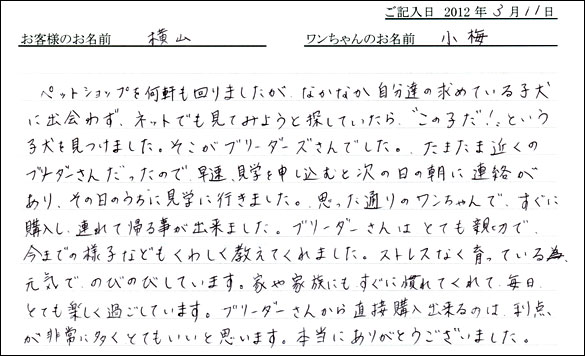 ご記入日 2012年3月11日
お客様のお名前 横山 ワンちゃんのお名前 小梅
ペットショップを何軒も回りましたが、なかなか自分達の求めている子犬
に出会わず、ネットでも見てみようと探していたら、"この子だ！"という
子犬を見つけました。そこがブリーダーズさんでした。たまたま近くの
ブリーダーさんだったので、早速、見学を申し込むと次の日の朝に連絡が
あり、その日のうちに見学に行きました。思った通りのワンちゃんで、すぐに
購入し、連れて帰る事が出来ました。ブリーダーさんはとても親切で、
今までの様子などもくわしく教えてくれました。ストレスなく育っている為、
元気で、のびのびしています。家や家族にもすぐに慣れてくれて、毎日、
とても楽しく過ごしています。ブリーダーさんから直接購入出来るのは、利点
が非常に多くとてもいいと思います。本当にありがとうございました。